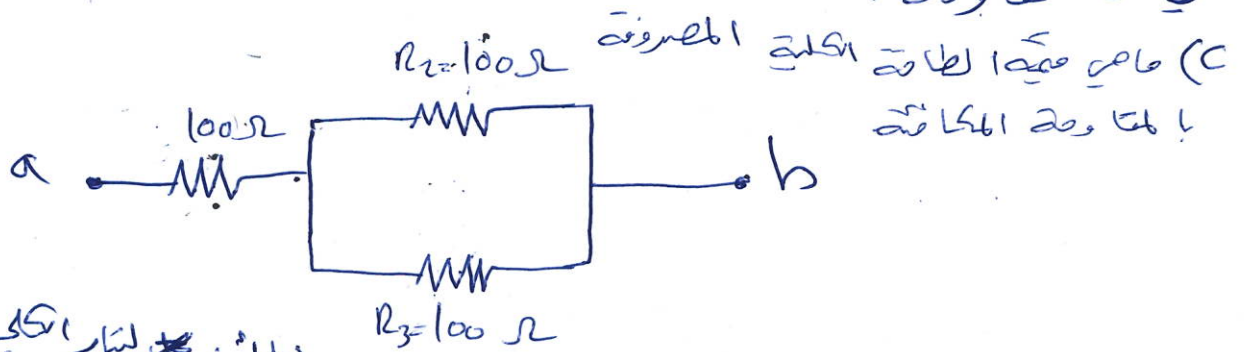 C) ما هي قيمة الطاقة الكلية المصروفة
بالمقاومة المكافئة
R₂=100Ω
100Ω
a
b
R₃=100 Ω